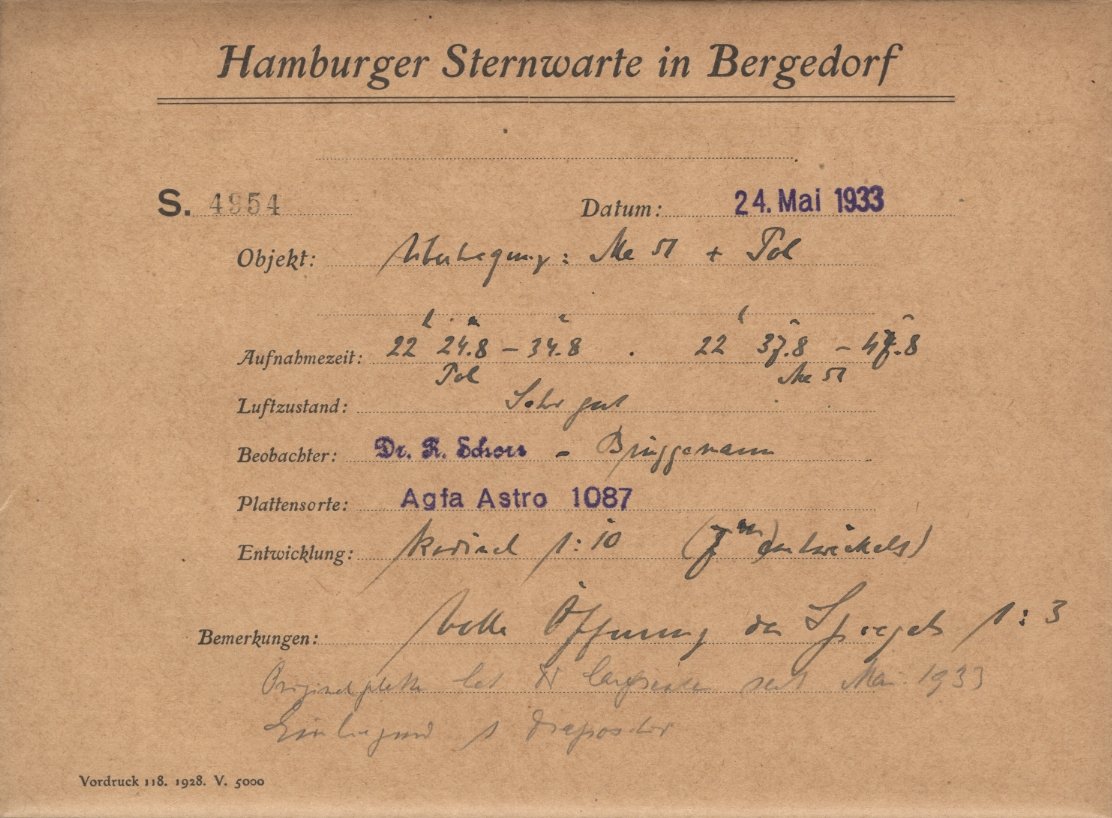 Hamburger Sternwarte in Bergedorf
S. 4954 Datum: 24. Mai 1933
Objekt: Übertragung: Me 51 + Pol
Aufnahmezeit: 22 h 24.8 m – 34.8 m . 22 h 37.8 m – 47.8 m
Pol Me 51
Luftzustand: Sehr gut
Beobachter: Dr. R. Schorr – Brüggemann
Plattensorte: Agfa Astro 1087
Entwicklung: Rodinal 1:10 (7 m entwickelt)
Bemerkungen: Volle Öffnung des Spiegels 1:3
Originalplatte hat seit Mai 1933
Einliegend 1 Diapositiv
Vordruck 118. 1928. V. 5000